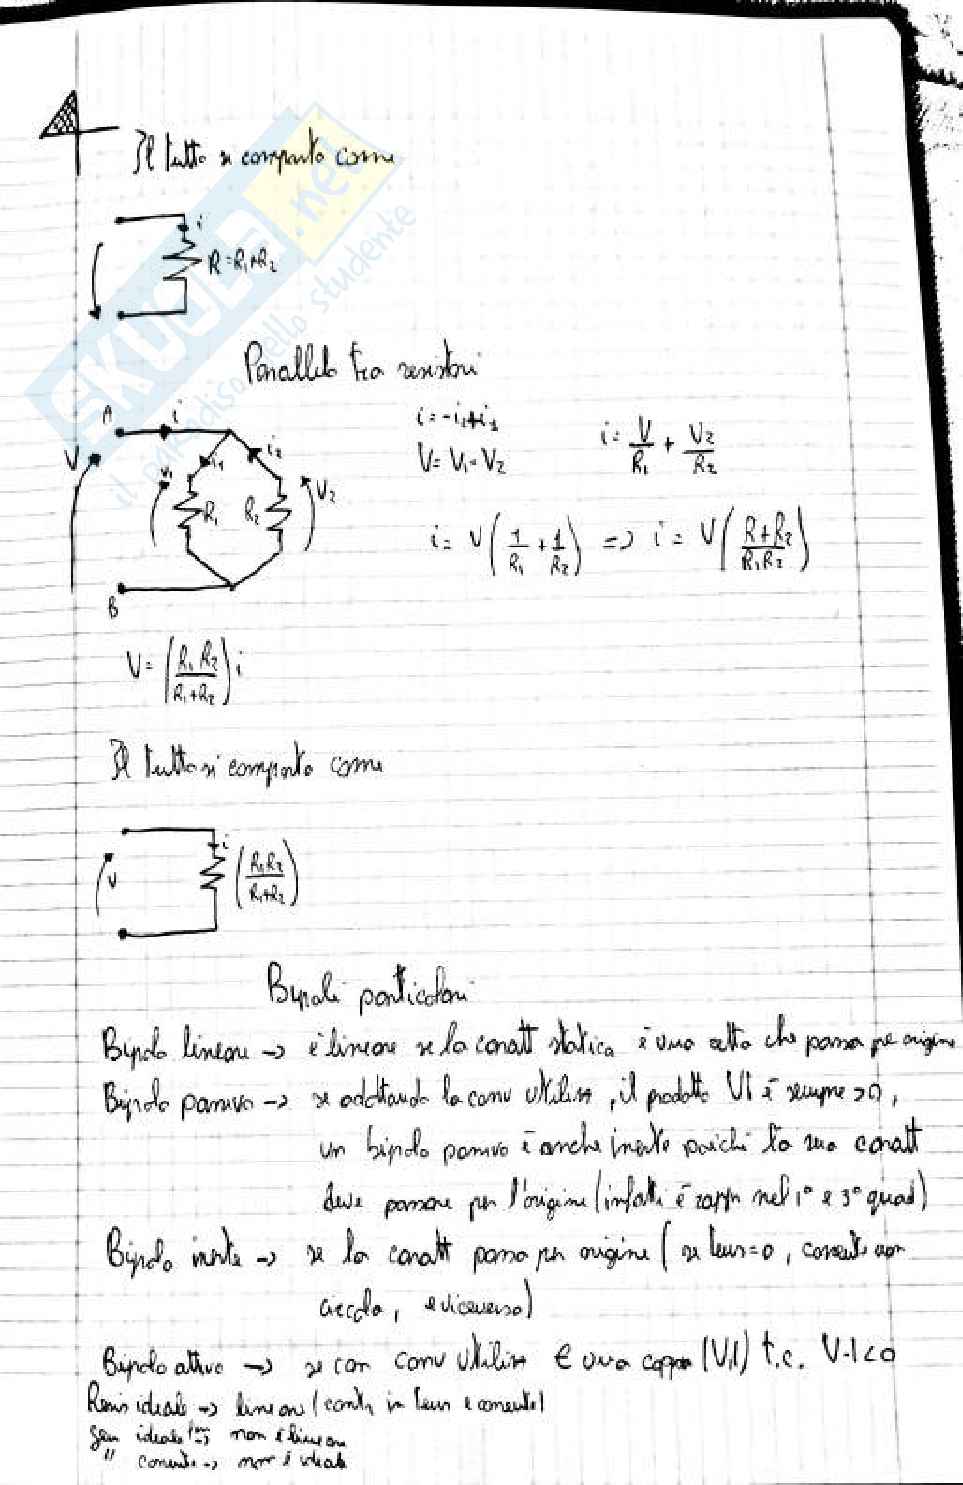 Il tutto si comporta come
i
R=R₁+R₂
SKUOLA.net
il paradiso dello studente
Parallelo tra resistori
A i
V V₁ i₁ i₂ V₂
R₁ R₂
B
i=-i₁+i₁
V=V₁=V₂
i= V/R₁ + V₂/R₂
i= V(1/R₁ + 1/R₂) => i= V(R+R₂/R₁R₂)
V= (R₁ R₂/R₁+R₂) i
Il tutto si comporta come
V i (R₁R₂/R₁+R₂)
Bipoli particolari
Bipolo lineare -> è lineare se la caratt statica è una retta che passa per origine
Bipolo passivo -> se adottando la conv utilizz, il prodotto VI è sempre >0,
un bipolo passivo è anche inerte poiché la sua caratt
deve passare per l'origine (infatti è rappr nel 1° e 3° quad)
Bipolo inerte -> se la caratt passa per origine (se tens=0, corrente non
circola, e viceversa)
Bipolo attivo -> se con conv utilizz E una coppia (V,I) t.c. V·I<0
Resis ideale -> lineare (contr in tens e corrente)
Gen ideale tens -> non è lineare
" corrente -> non è ideale